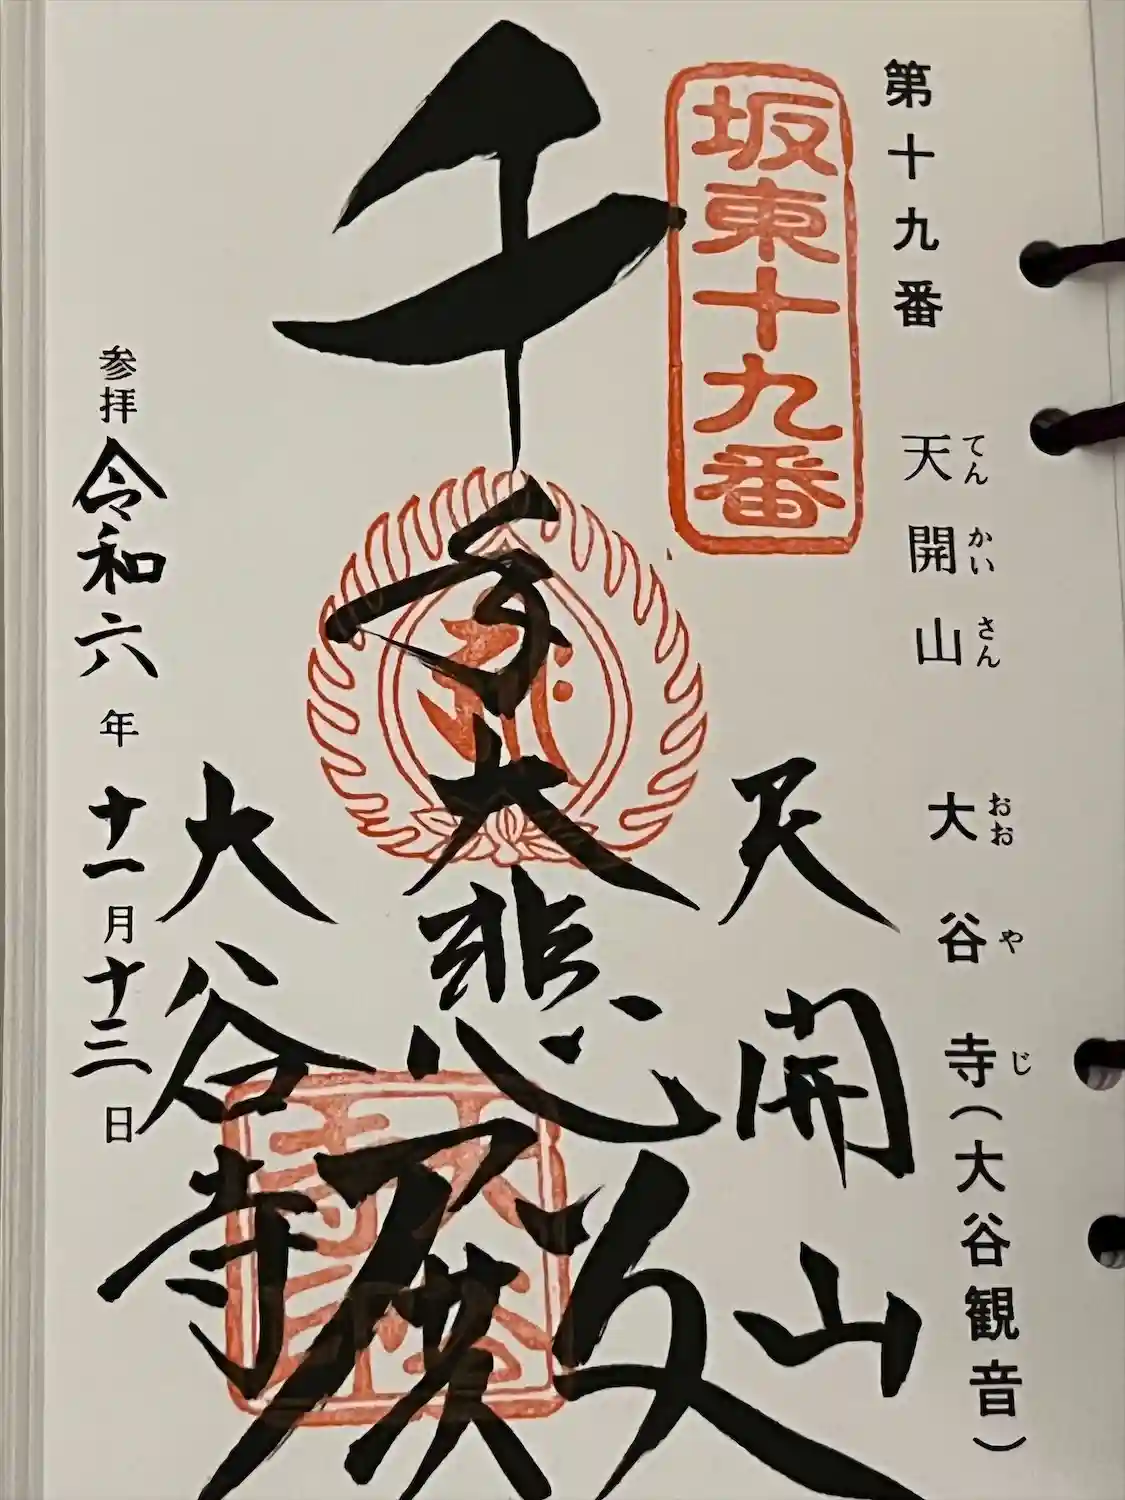 第十九番 天開山 大谷寺(大谷観音)
てんかいさん おおやじ
坂東十九番
天開山
千手大悲殿
大谷寺
参拝 令和六年十一月十三日